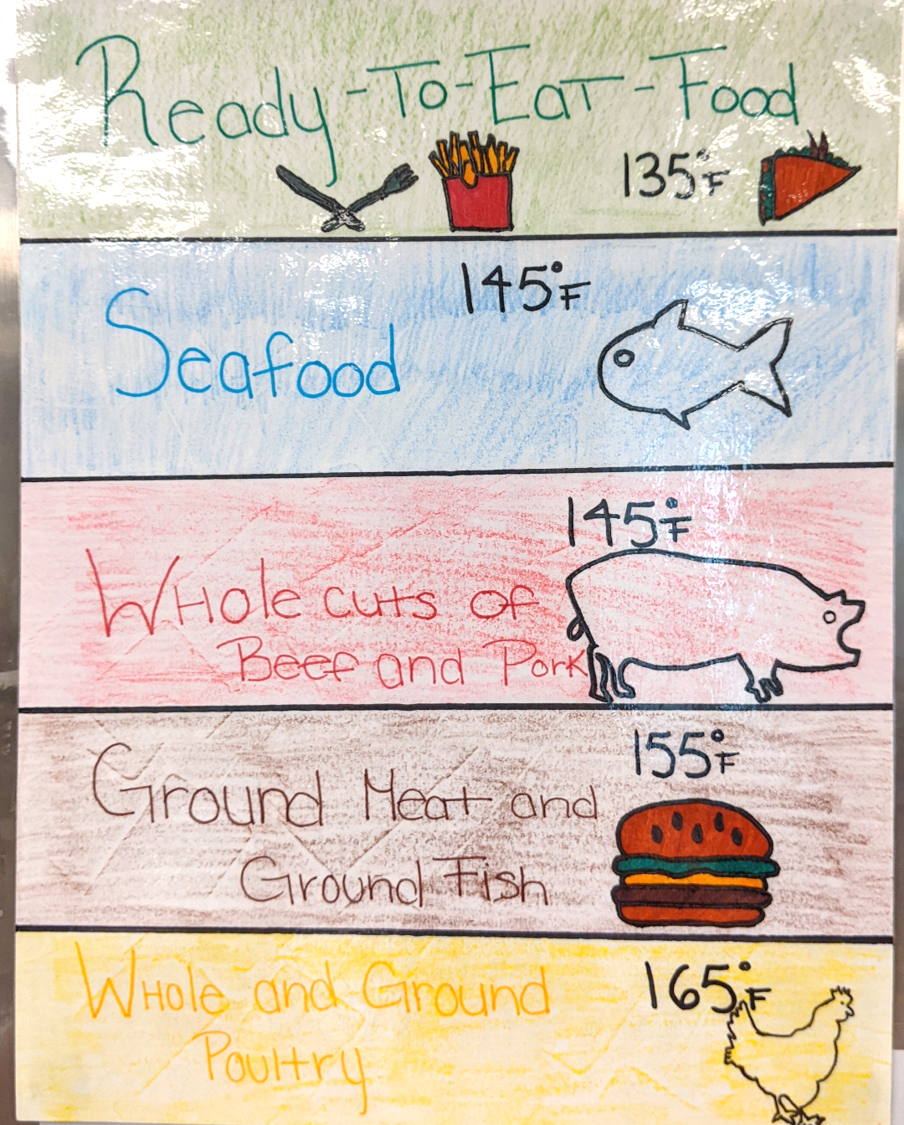 Ready-To-Eat-Food
135°F
145°F
Seafood
145°F
Whole cuts of
Beef and Pork
155°F
Ground Meat and
Ground Fish
Whole and Ground
165°F
Poultry